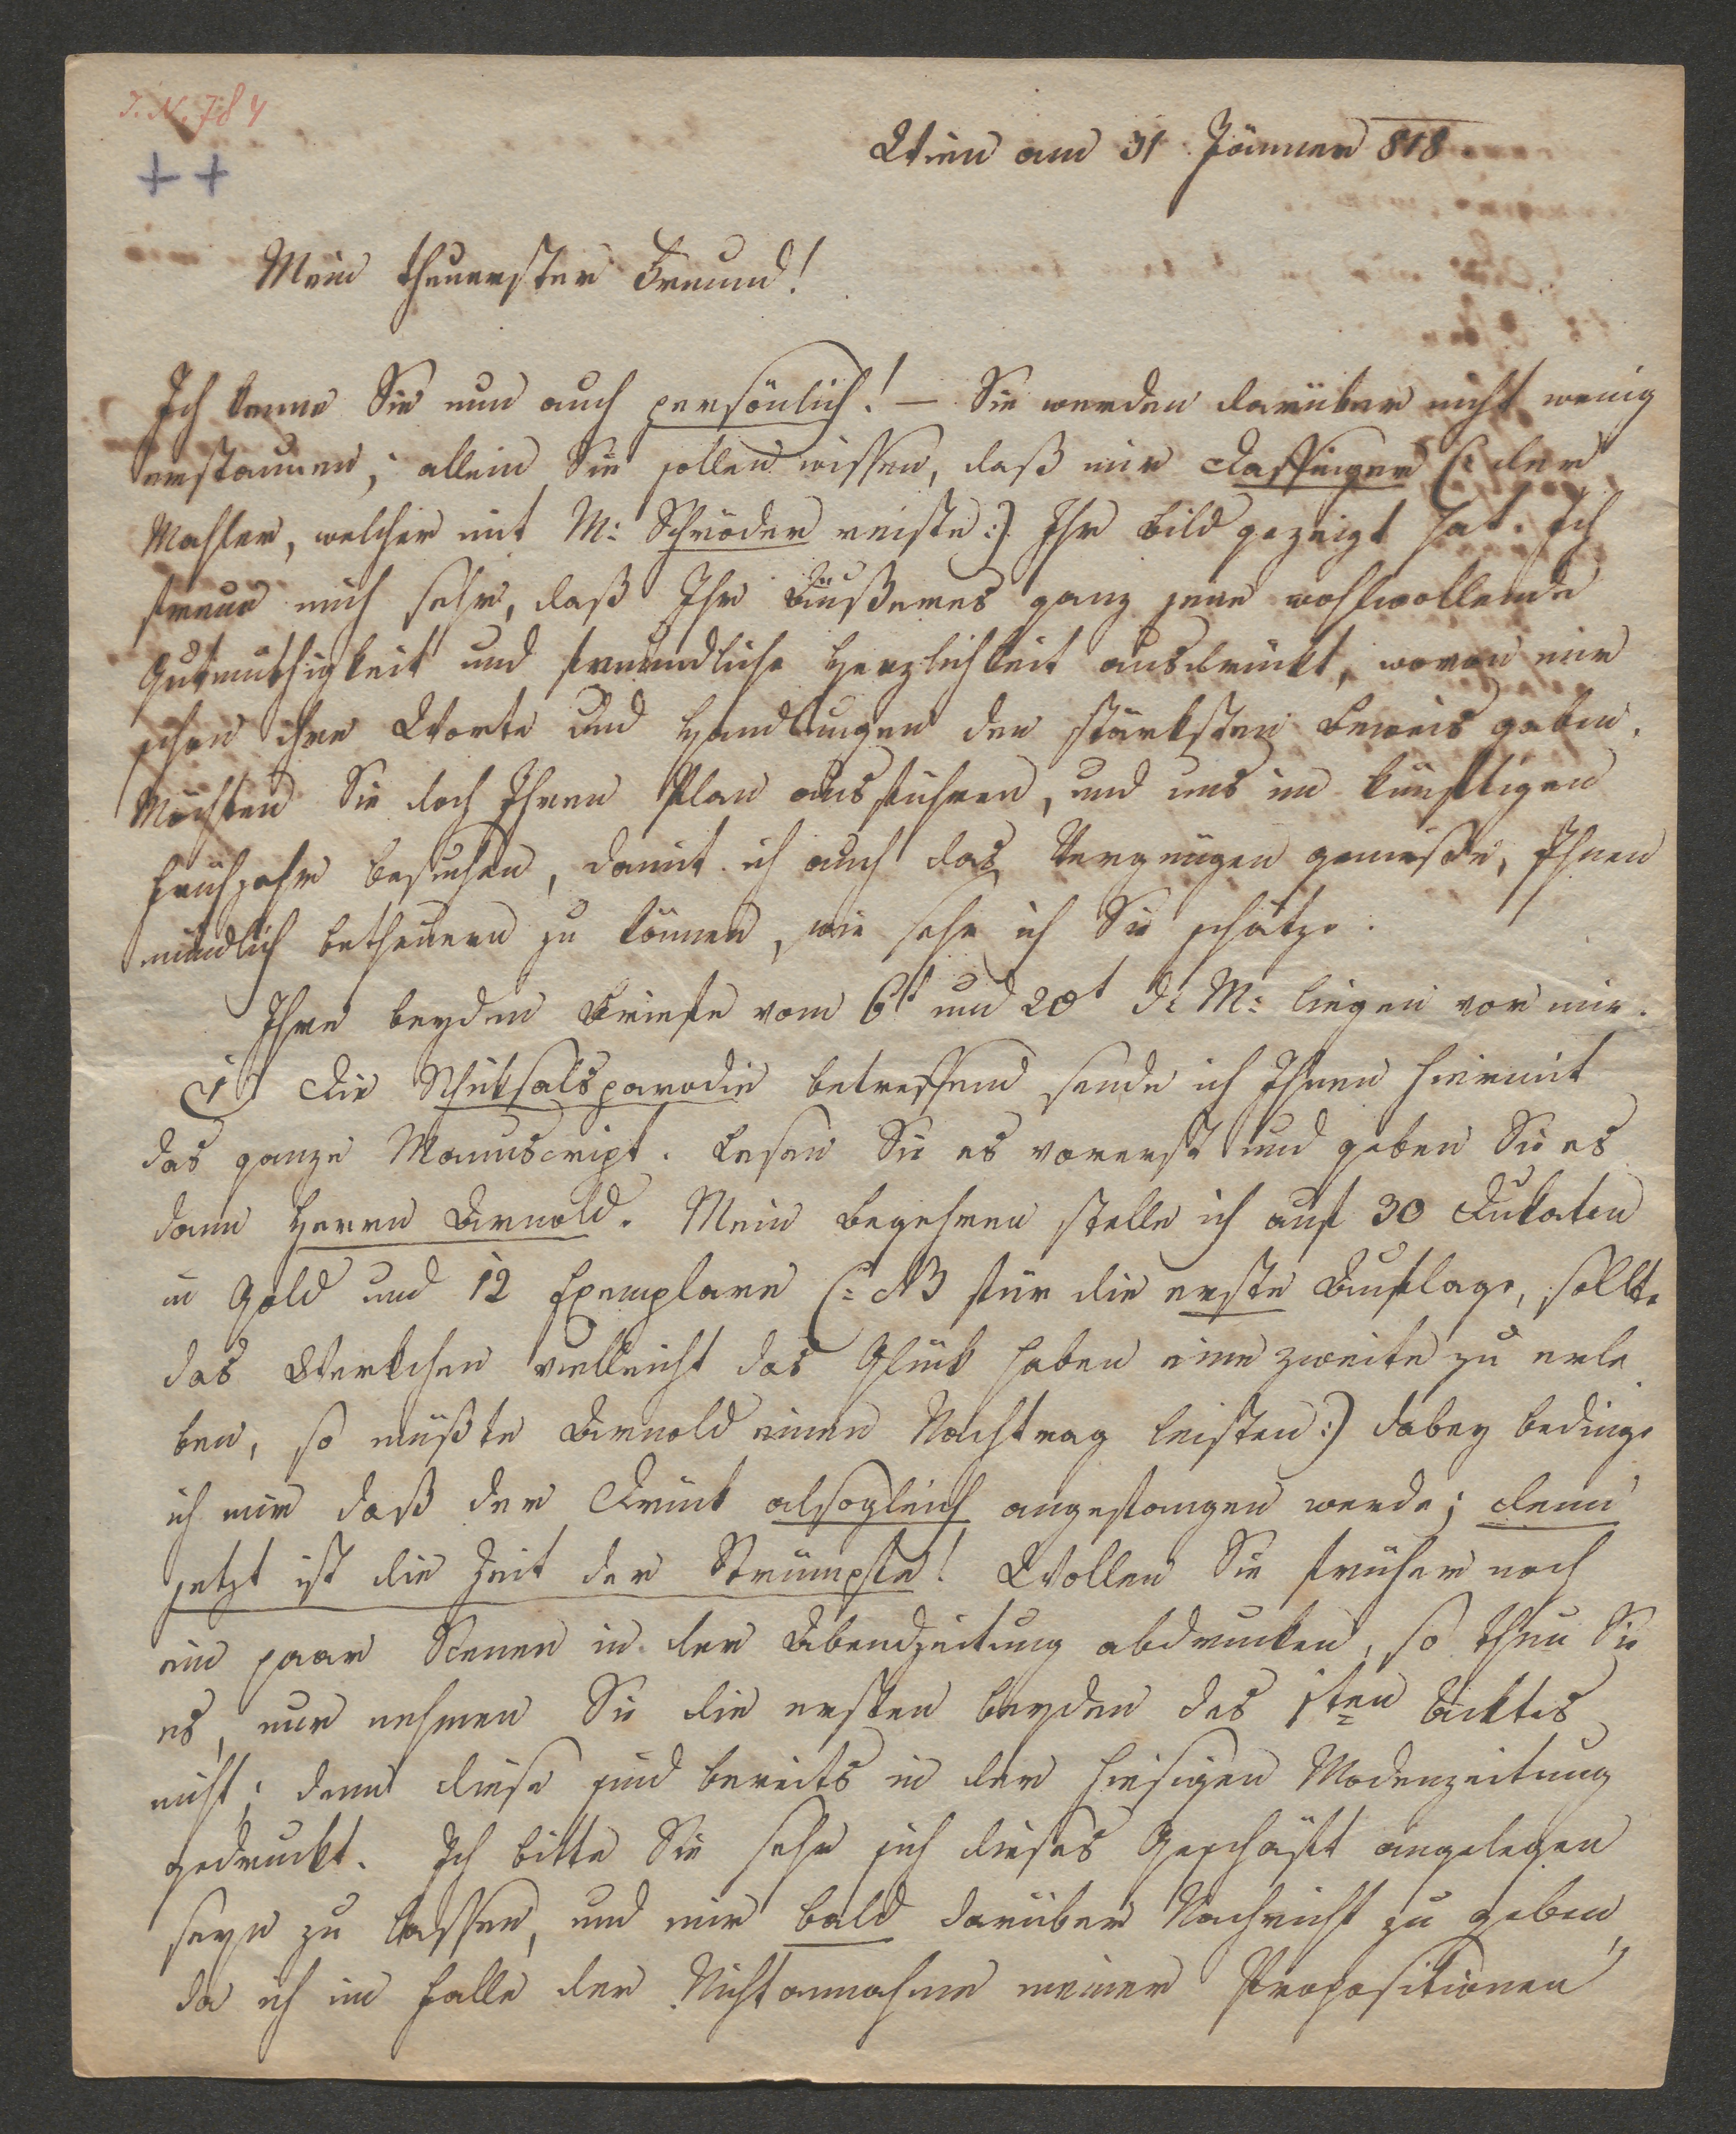 J. N. 784
++
Wien am 31 Jänner 818
Mein theuerster Freund!
Ich kenne Sie nun auch persönlich! — Sie werden darüber nicht wenig
erstaunen; allein Sie sollen wissen, daß mir Daffinger (: der
Mahler, welcher mit M: Schröder reiste :) Ihr Bild gezeigt hat. Ich
freue mich sehr, daß Ihr Äußeres ganz jene wohlwollende
Gutmüthigkeit und freundliche Herzlichkeit ausdrückt, wovon mir
schon ihre Worte und Handlungen den stärksten Beweis gaben.
Möchten Sie doch Ihren Plan ausführen, und uns im künftigen
Frühjahr besuchen, damit ich auch das Vergnügen genieße, Ihnen
mündlich betheuern zu können, wie sehr ich Sie schätze.
Ihre beyden Briefe vom 6t und 20t d: M: liegen vor mir.
1) Die Schiksalsparodie betreffend sende ich Ihnen hiermit
das ganze Manuscript. Lesen Sie es vorerst und geben Sie es
dann Herrn Arnold. Mein Begehren stelle ich auf 30 Dukaten
in Gold und 12 Exemplare (: NB für die erste Auflage, sollte
das Werkchen vielleicht das Glück haben eine zweite zu erle
ben, so müßte Arnold einen Nachtrag leisten :) dabey bedinge
ich mir daß der Druck alsogleich angefangen werde; denn
jetzt ist die Zeit der Strümpfe! Wollen Sie früher noch
ein paar Scenen in der Abendzeitung abdrucken, so thun Sie
es, nur nehmen Sie die ersten beyden des 1ten Acktes
nicht; denn diese sind bereits in der hiesigen Modenzeitung
gedruckt. Ich bitte Sie sehr sich dieses Geschäft angelegen
seyn zu lassen, und mir bald darüber Nachricht zu geben,
da ich im Falle der Nichtannahme meiner Propositionen